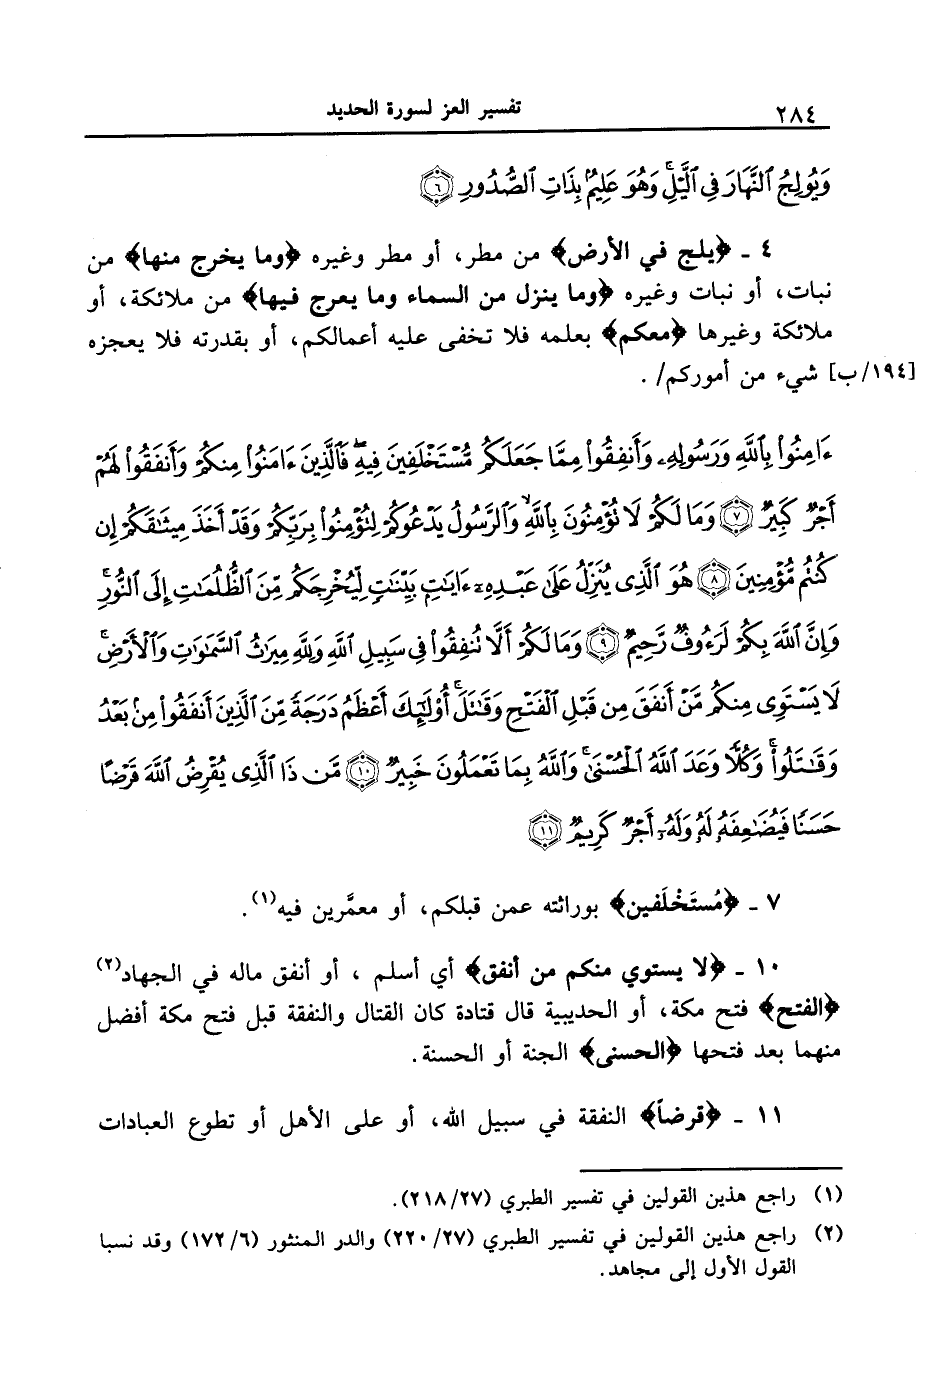 ٢٨٤ تفسير العز لسورة الحديد
وَيُولِجُ ٱلنَّهَارَ فِى ٱلَّيْلِۚ وَهُوَ عَلِيمٌۢ بِذَاتِ ٱلصُّدُورِ ۝٦
٤ ـ ﴿يلج في الأرض﴾ من مطر، أو مطر وغيره ﴿وما يخرج منها﴾ من
نبات، أو نبات وغيره ﴿وما ينزل من السماء وما يعرج فيها﴾ من ملائكة، أو
ملائكة وغيرها ﴿معكم﴾ بعلمه فلا تخفى عليه أعمالكم، أو بقدرته فلا يعجزه
[١٩٤/ب] شيء من أموركم/ .
ءَامِنُوا۟ بِٱللَّهِ وَرَسُولِهِۦ وَأَنفِقُوا۟ مِمَّا جَعَلَكُم مُّسْتَخْلَفِينَ فِيهِۖ فَٱلَّذِينَ ءَامَنُوا۟ مِنكُمْ وَأَنفَقُوا۟ لَهُمْ
أَجْرٌ كَبِيرٌ ۝٧ وَمَا لَكُمْ لَا تُؤْمِنُونَ بِٱللَّهِۙ وَٱلرَّسُولُ يَدْعُوكُمْ لِتُؤْمِنُوا۟ بِرَبِّكُمْ وَقَدْ أَخَذَ مِيثَٰقَكُمْ إِن
كُنتُم مُّؤْمِنِينَ ۝٨ هُوَ ٱلَّذِى يُنَزِّلُ عَلَىٰ عَبْدِهِۦٓ ءَايَٰتٍۭ بَيِّنَٰتٍ لِّيُخْرِجَكُم مِّنَ ٱلظُّلُمَٰتِ إِلَى ٱلنُّورِۚ
وَإِنَّ ٱللَّهَ بِكُمْ لَرَءُوفٌ رَّحِيمٌ ۝٩ وَمَا لَكُمْ أَلَّا تُنفِقُوا۟ فِى سَبِيلِ ٱللَّهِ وَلِلَّهِ مِيرَٰثُ ٱلسَّمَٰوَٰتِ وَٱلْأَرْضِۚ
لَا يَسْتَوِى مِنكُم مَّنْ أَنفَقَ مِن قَبْلِ ٱلْفَتْحِ وَقَٰتَلَۚ أُو۟لَٰٓئِكَ أَعْظَمُ دَرَجَةً مِّنَ ٱلَّذِينَ أَنفَقُوا۟ مِنۢ بَعْدُ
وَقَٰتَلُوا۟ۚ وَكُلًّا وَعَدَ ٱللَّهُ ٱلْحُسْنَىٰۚ وَٱللَّهُ بِمَا تَعْمَلُونَ خَبِيرٌ ۝١٠ مَّن ذَا ٱلَّذِى يُقْرِضُ ٱللَّهَ قَرْضًا
حَسَنًا فَيُضَٰعِفَهُۥ لَهُۥ وَلَهُۥٓ أَجْرٌ كَرِيمٌ ۝١١
٧ ـ ﴿مُستَخْلَفين﴾ بوراثته عمن قبلكم، أو معمَّرين فيه(١).
١٠ ـ ﴿لا يستوي منكم من أنفق﴾ أي أسلم ، أو أنفق ماله في الجهاد(٢)
﴿الفتح﴾ فتح مكة، أو الحديبية قال قتادة كان القتال والنفقة قبل فتح مكة أفضل
منهما بعد فتحها ﴿الحسنى﴾ الجنة أو الحسنة.
١١ ـ ﴿قرضاً﴾ النفقة في سبيل الله، أو على الأهل أو تطوع العبادات
(١) راجع هذين القولين في تفسير الطبري (٢٧/٢١٨).
(٢) راجع هذين القولين في تفسير الطبري (٢٧/٢٢٠) والدر المنثور (٦/١٧٢) وقد نسبا
القول الأول إلى مجاهد.